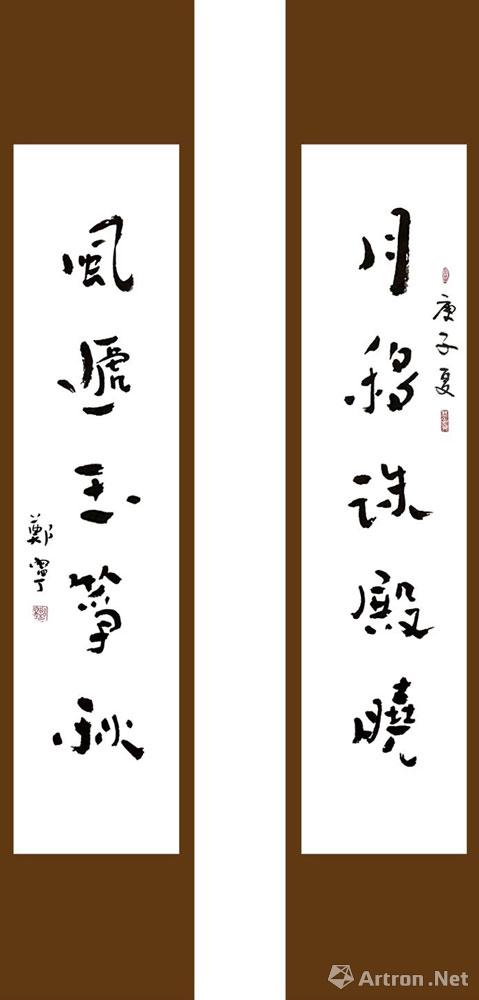 月移珠殿曉
庚子夏
風遞玉箏秋
鄭寧
Artron.Net